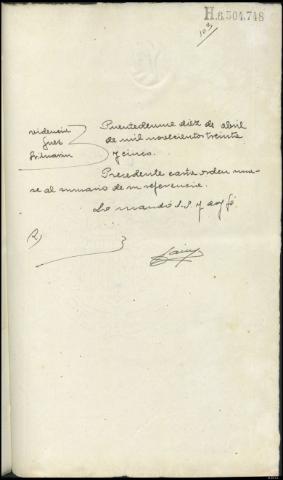 H.6.504.748
103
Puentedeume diez de abril
de mil novecientos treinta
y cinco.
Precedente carta orden úna-
se al sumario de su referencia.
Lo mandó S.S. y doy fé